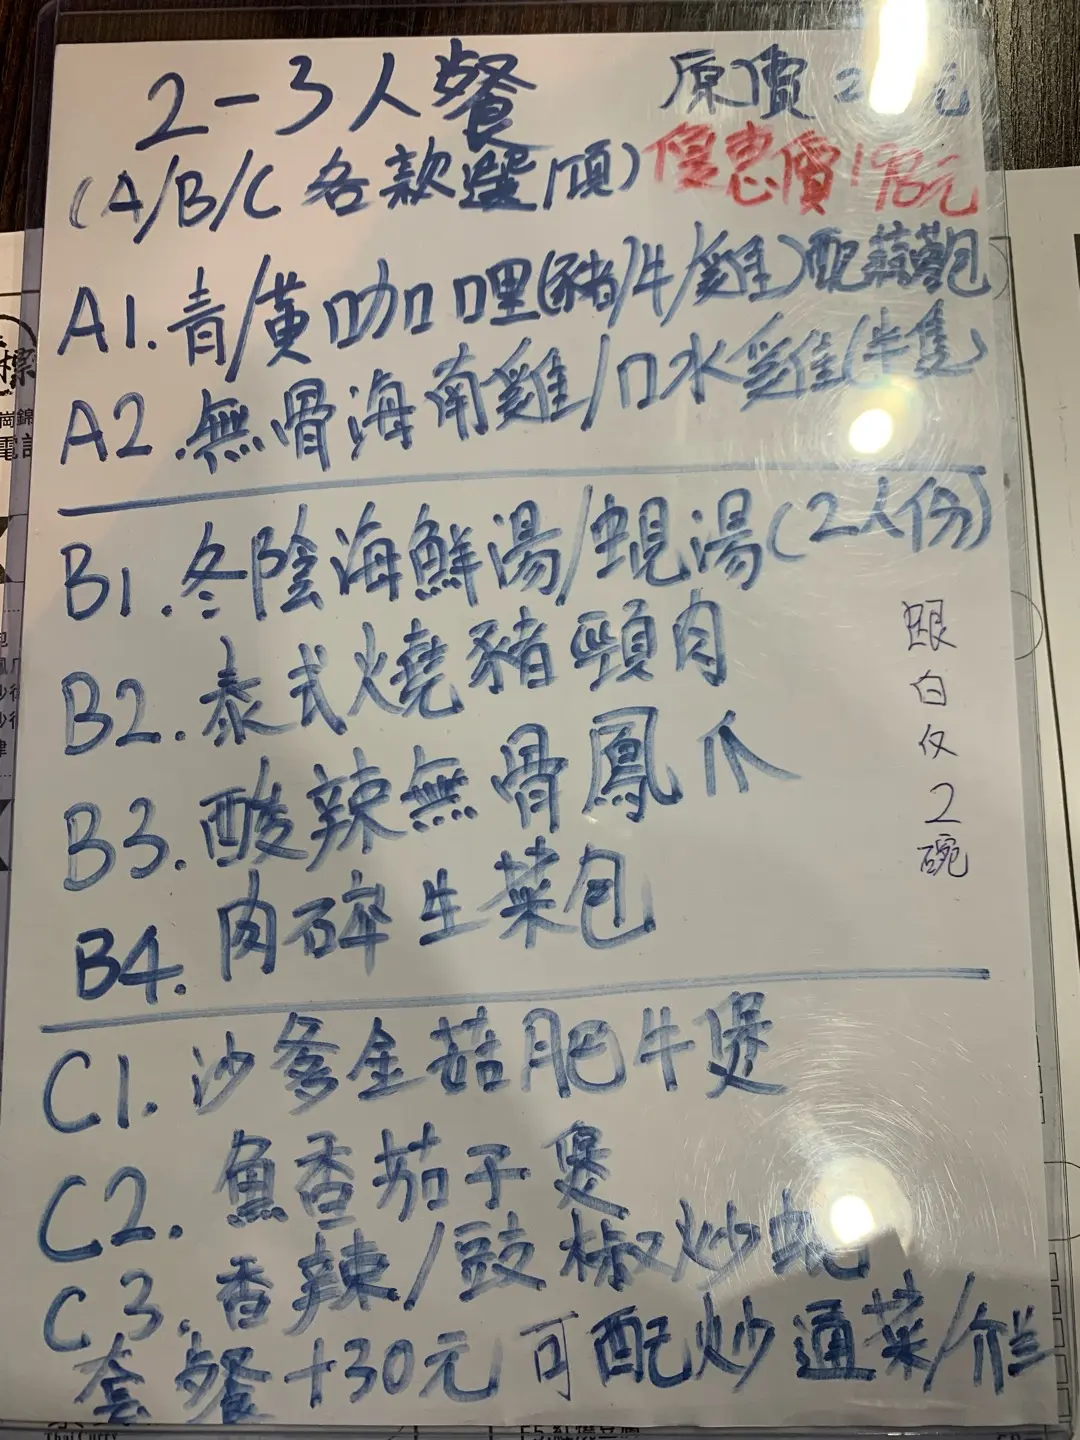 2-3人餐 原價2 元
(A/B/C 各款選1項) 優惠價198元
A1. 青/黃咖喱(豬/牛/雞)配蒜蓉包
A2. 無骨海南雞/口水雞(半隻)
B1. 冬陰海鮮湯/蜆湯(2人份)
B2. 泰式燒豬頸肉
B3. 酸辣無骨鳳爪
B4. 肉碎生菜包
跟白反2碗
C1. 沙爹金菇肥牛煲
C2. 魚香茄子煲
C3. 香辣/豉椒炒蜆
套餐+30元可配炒通菜/介兰
標
電話
Thai Curry
E5.紅燒豆腐